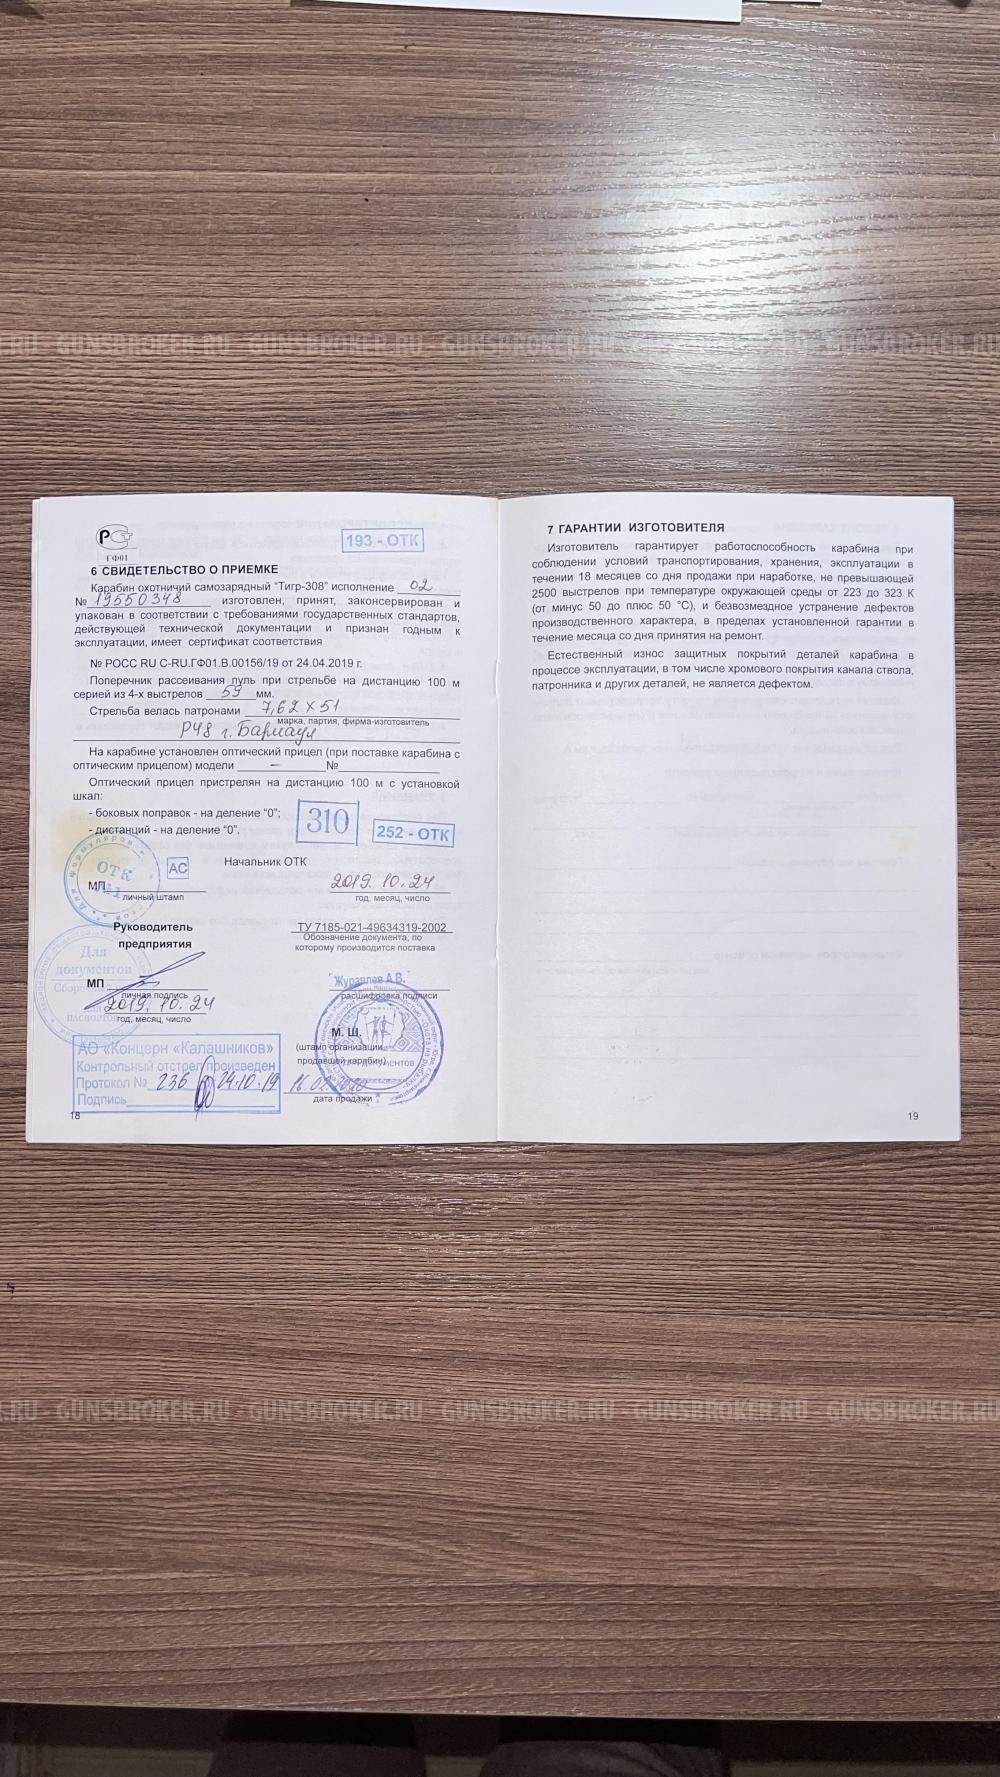 GUNSBROKER.RU GUNSBROKER.RU GUNSBROKER.RU GUNSBROKER.RU
РСТ
ГФ01
193 - ОТК
6 СВИДЕТЕЛЬСТВО О ПРИЕМКЕ
Карабин охотничий самозарядный “Тигр-308” исполнение 02
№ 19550348 изготовлен, принят, законсервирован и
упакован в соответствии с требованиями государственных стандартов,
действующей технической документации и признан годным к
эксплуатации, имеет сертификат соответствия
№ РОСС RU С-RU.ГФ01.В.00156/19 от 24.04.2019 г.
Поперечник рассеивания пуль при стрельбе на дистанцию 100 м
серией из 4-х выстрелов 59 мм.
Стрельба велась патронами 7,62 х 51
марка, партия, фирма-изготовитель
Р48 г. Барнаул
На карабине установлен оптический прицел (при поставке карабина с
оптическим прицелом) модели – №
Оптический прицел пристрелян на дистанцию 100 м с установкой
шкал:
- боковых поправок - на деление “0”;
- дистанций - на деление “0”.
310
252 - ОТК
Для формуляров
ОТК
№1
АС
Начальник ОТК
МП
личный штамп
2019. 10. 24
год, месяц, число
Руководитель
предприятия
ТУ 7185-021-49634319-2002
Обозначение документа, по
которому производится поставка
Для
документов
МП
личная подпись
Журавлев А.В.
расшифровка подписи
2019. 10. 24
год, месяц, число
ПАСПОРТОВ
М. Ш.
(штамп организации,
продавшей карабин)
документов
АО «Концерн «Калашников»
Контрольный отстрел произведен
Протокол № 236 24.10.19
Подпись
дата продажи
18
7 ГАРАНТИИ ИЗГОТОВИТЕЛЯ
Изготовитель гарантирует работоспособность карабина при
соблюдении условий транспортирования, хранения, эксплуатации в
течении 18 месяцев со дня продажи при наработке, не превышающей
2500 выстрелов при температуре окружающей среды от 223 до 323 К
(от минус 50 до плюс 50 °С), и безвозмездное устранение дефектов
производственного характера, в пределах установленной гарантии в
течение месяца со дня принятия на ремонт.
Естественный износ защитных покрытий деталей карабина в
процессе эксплуатации, в том числе хромового покрытия канала ствола,
патронника и других деталей, не является дефектом.
19
GUNSBROKER.RU GUNSBROKER.RU GUNSBROKER.RU GUNSBROKER.RU GUNSBROKER.RU